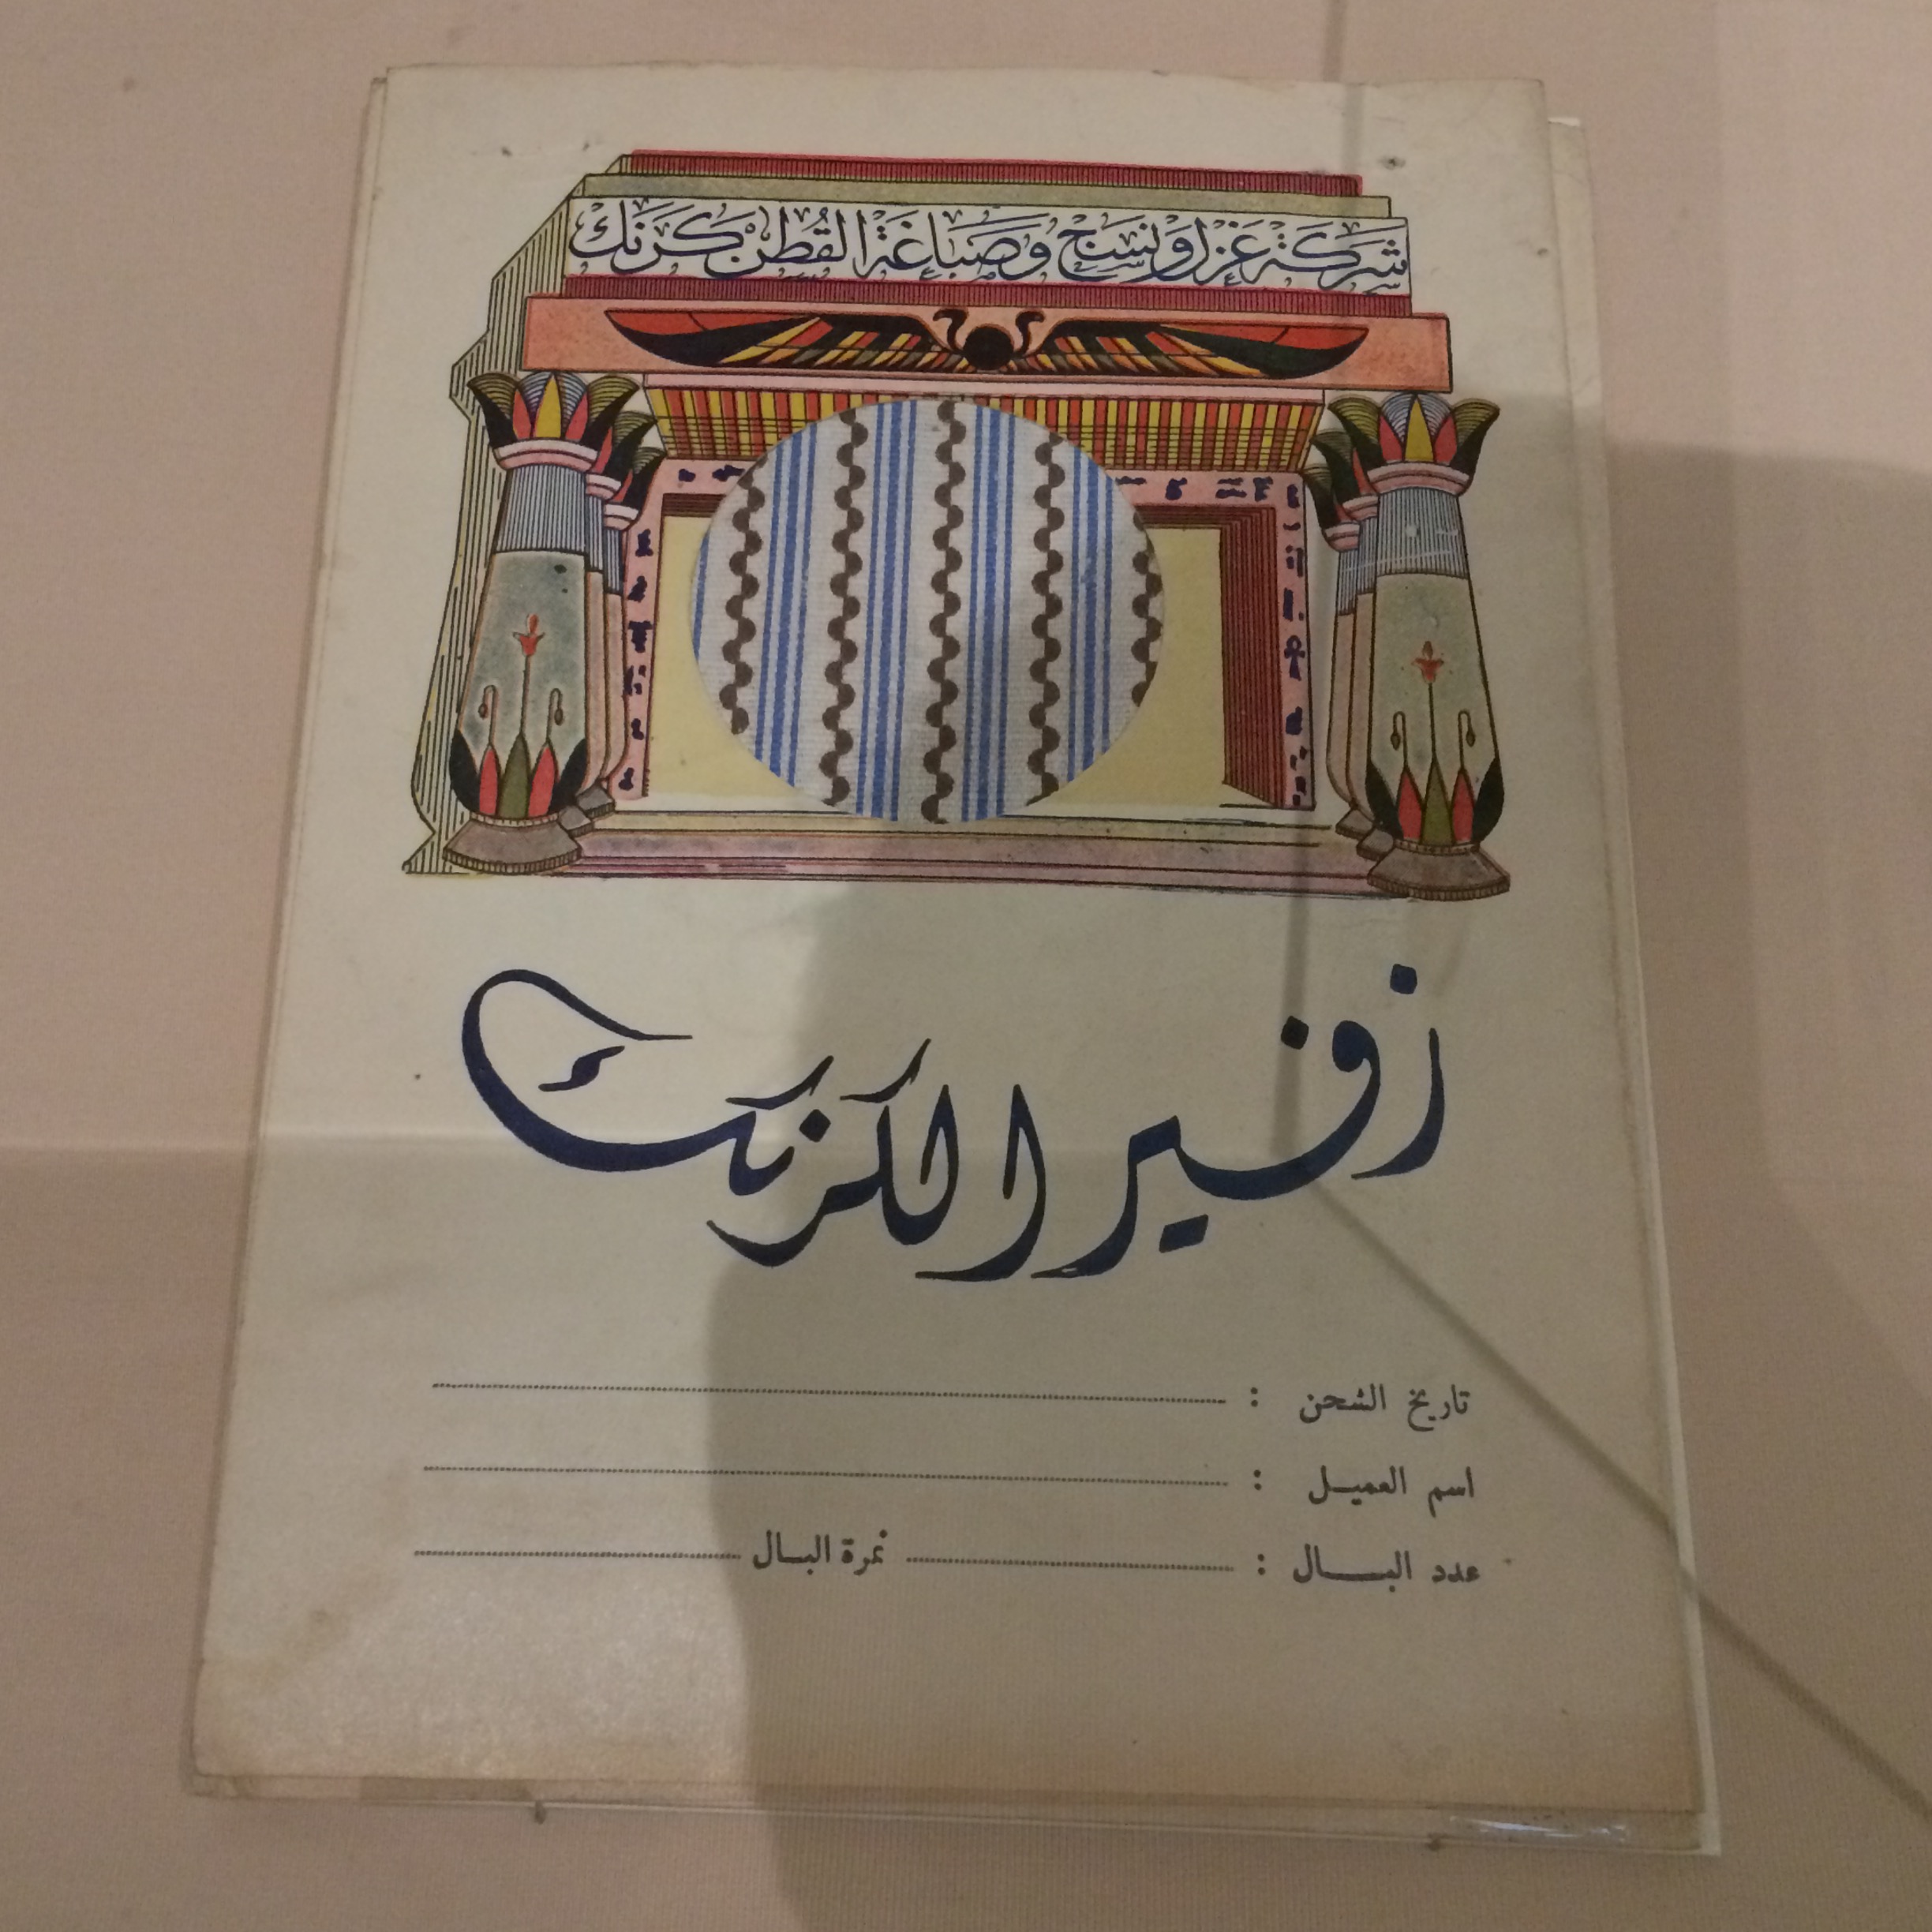 شركة غزل ونسج وصباغة القطن كرنك
زفير الكرنك
تاريخ الشحن :
اسم العميل :
عدد البال : نمرة البال